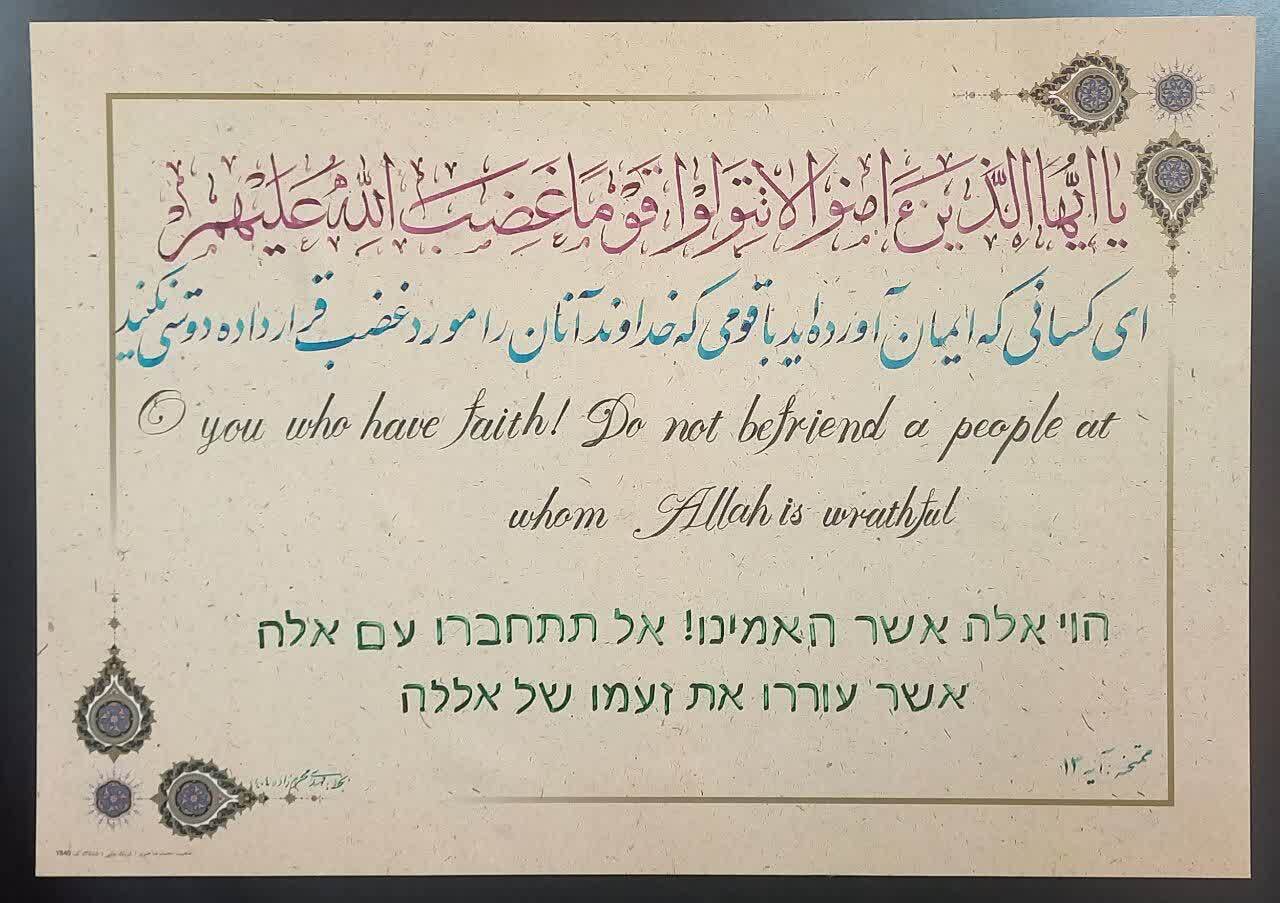 يا ايّها الَّذينَ ءَامنوا لا تتولَّوْا قَوْمًا غَضِبَ اللهُ عَلَيْهِمْ
ای کسانی که ایمان آورده اید با قومی که خداوند آنان را مورد غضب قرار داده دوستی نکنید
O you who have faith! Do not befriend a people at
whom Allah is wrathful
הוי אלה אשר האמינו! אל תתחברו עם אלה
אשר עוררו את זעמו של אללה
ممتحنه: آیه ۱۳